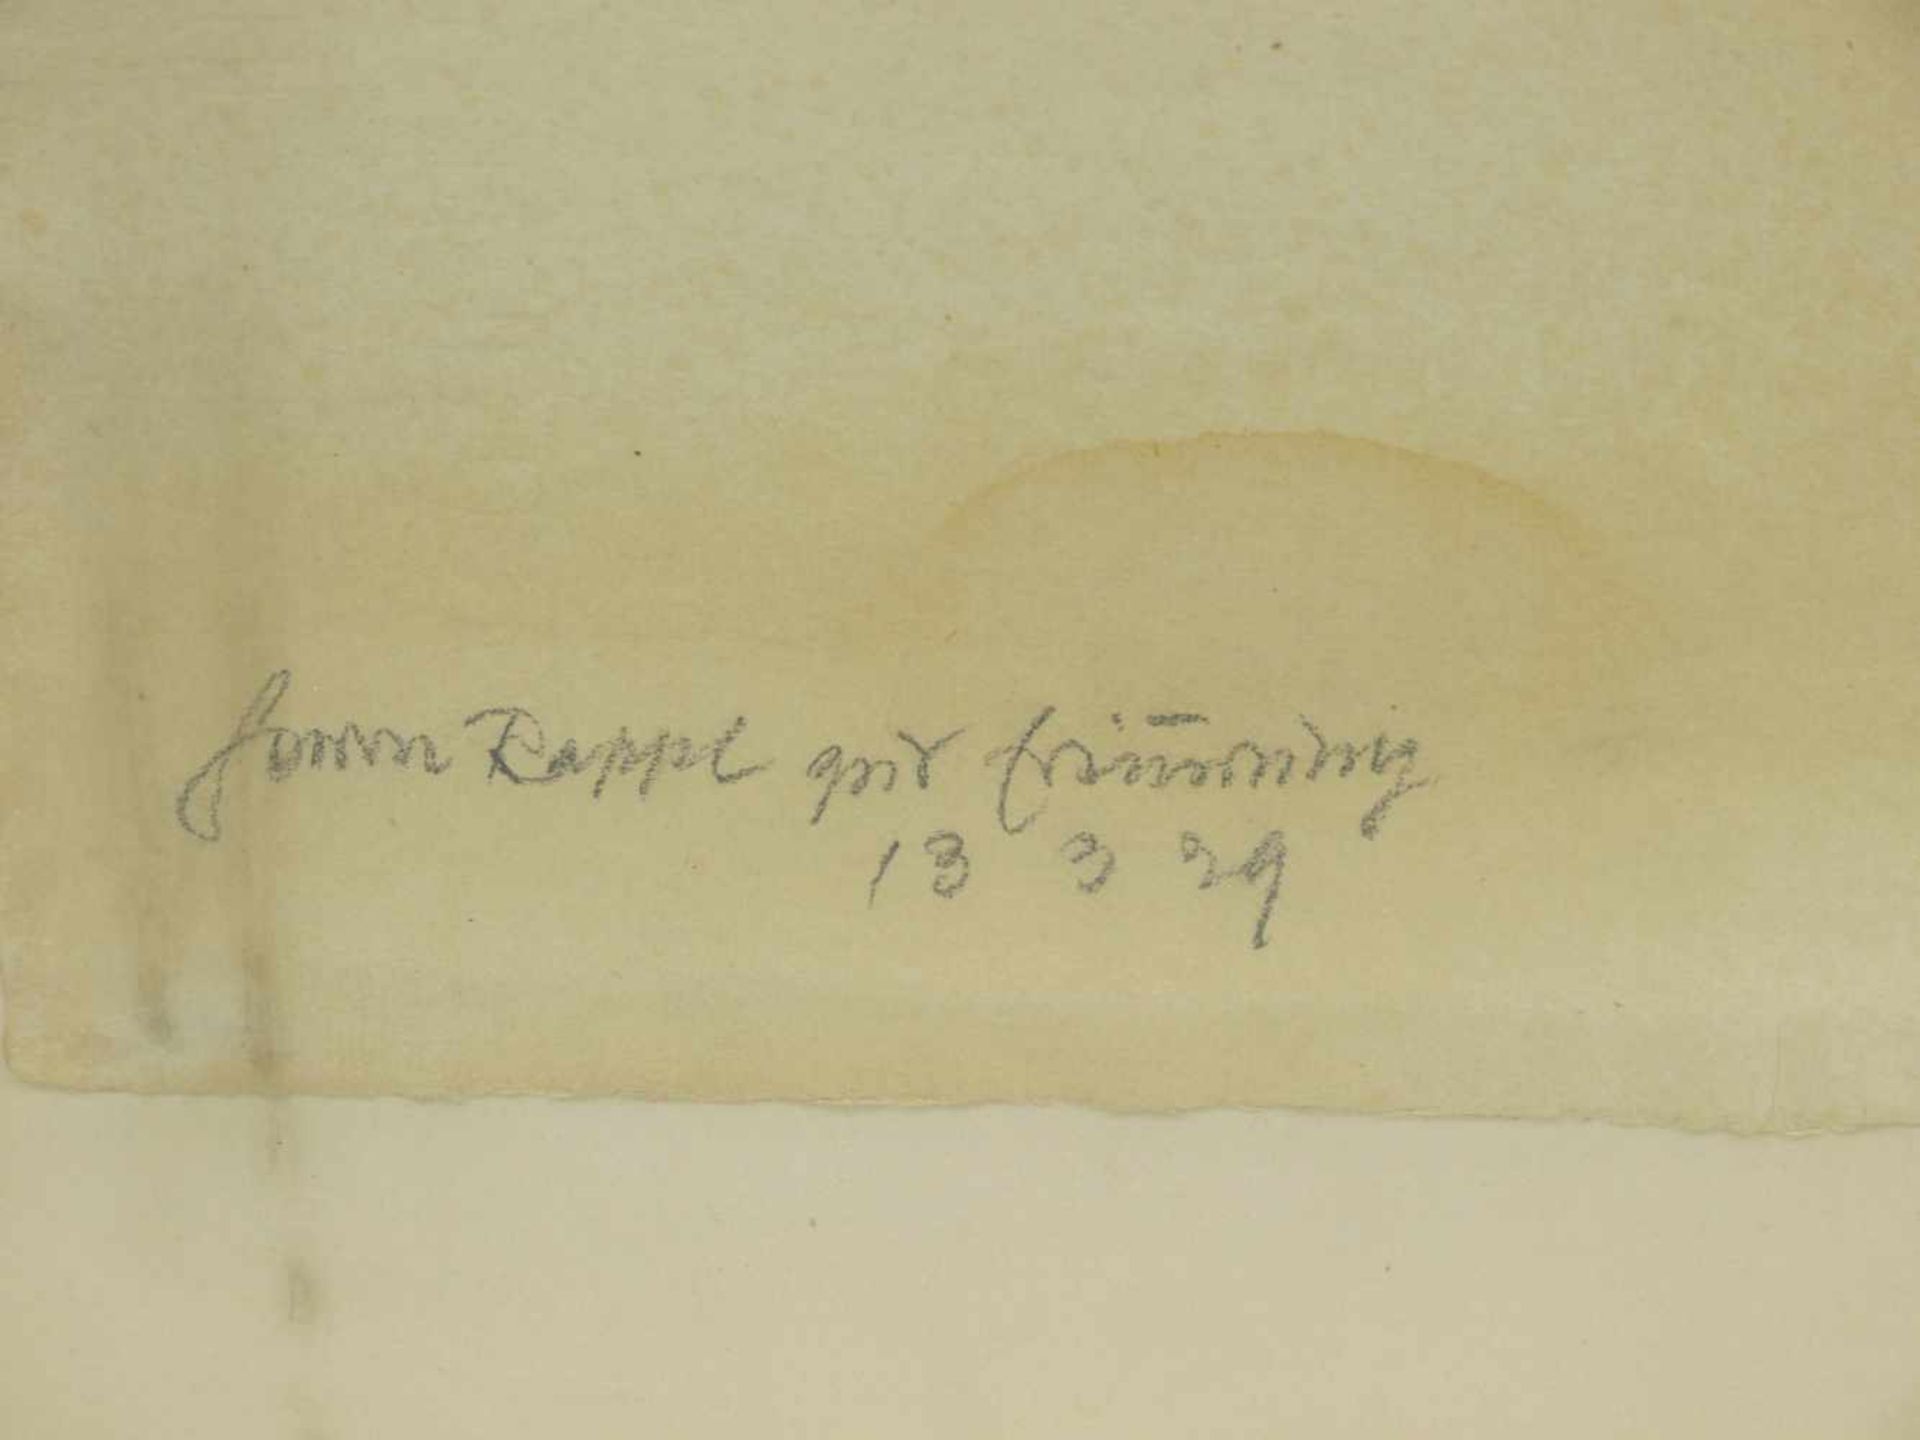 Herrn Rappl zur Erinnerung
13 3 29